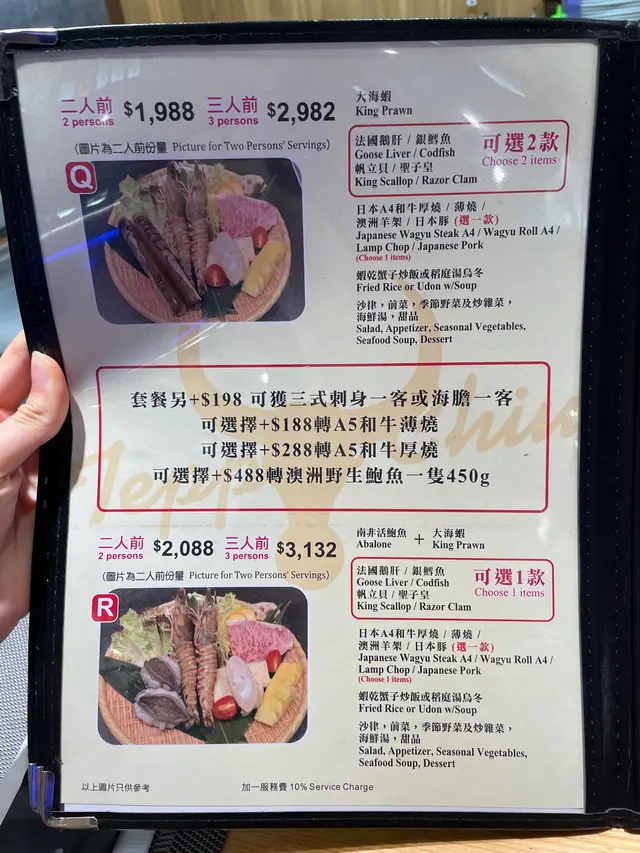 二人前 $1,988 三人前 $2,982
2 persons 3 persons
(圖片為二人前份量 Picture for Two Persons' Servings)
Q
大海蝦
King Prawn
法國鵝肝 / 銀鱈魚
Goose Liver / Codfish
帆立貝 / 聖子皇
King Scallop / Razor Clam
可選2款
Choose 2 items
日本A4和牛厚燒 / 薄燒 /
澳洲羊架 / 日本豚 (選一款)
Japanese Wagyu Steak A4 / Wagyu Roll A4 /
Lamp Chop / Japanese Pork
(Choose 1 items)
蝦乾蟹子炒飯或稻庭湯烏冬
Fried Rice or Udon w/Soup
沙律，前菜，季節野菜及炒雜菜，
海鮮湯，甜品
Salad, Appetizer, Seasonal Vegetables,
Seafood Soup, Dessert
套餐另+$198 可獲三式刺身一客或海膽一客
可選擇+$188轉A5和牛薄燒
可選擇+$288轉A5和牛厚燒
可選擇+$488轉澳洲野生鮑魚一隻450g
二人前 $2,088 三人前 $3,132
2 persons 3 persons
(圖片為二人前份量 Picture for Two Persons' Servings)
R
南非活鮑魚 + 大海蝦
Abalone King Prawn
法國鵝肝 / 銀鱈魚
Goose Liver / Codfish
帆立貝 / 聖子皇
King Scallop / Razor Clam
可選1款
Choose 1 items
日本A4和牛厚燒 / 薄燒 /
澳洲羊架 / 日本豚 (選一款)
Japanese Wagyu Steak A4 / Wagyu Roll A4 /
Lamp Chop / Japanese Pork
(Choose 1 items)
蝦乾蟹子炒飯或稻庭湯烏冬
Fried Rice or Udon w/Soup
沙律，前菜，季節野菜及炒雜菜，
海鮮湯，甜品
Salad, Appetizer, Seasonal Vegetables,
Seafood Soup, Dessert
以上圖片只供參考 加一服務費 10% Service Charge